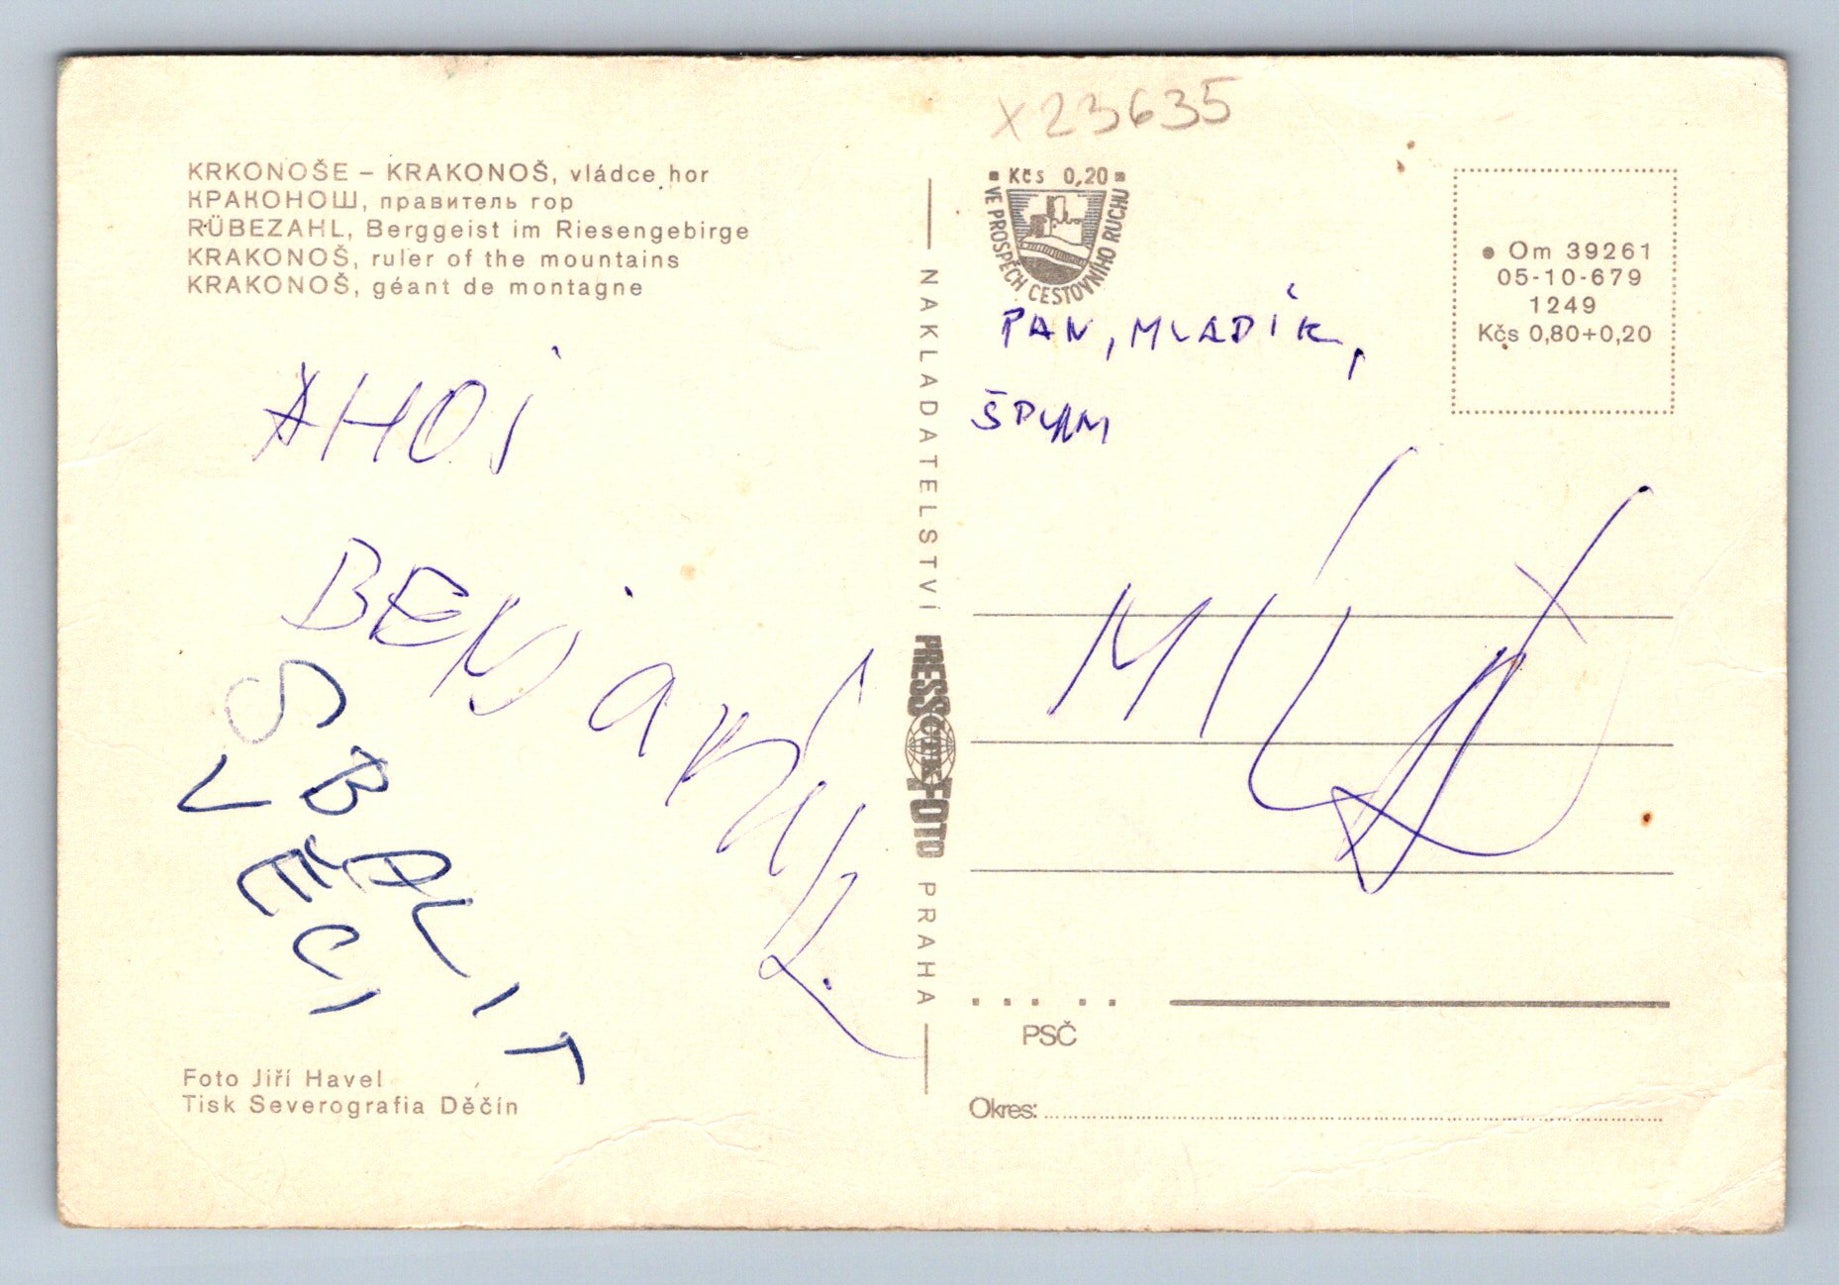 x23635
KRKONOŠE – KRAKONOŠ, vládce hor
КРАКОНОШ, правитель гор
RÜBEZAHL, Berggeist im Riesengebirge
KRAKONOŠ, ruler of the mountains
KRAKONOŠ, géant de montagne
AHOJ
SBALIT
VĚCI
Foto Jiří Havel
Tisk Severografia Děčín
NAKLADATELSTVÍ PRESSFOTO PRAHA
ČTK
Kčs 0,20
VE PROSPĚCH CESTOVNÍHO RUCHU
Om 39261
05-10-679
1249
Kčs 0,80+0,20
PAN, MLADÍK,
PSČ
Okres: